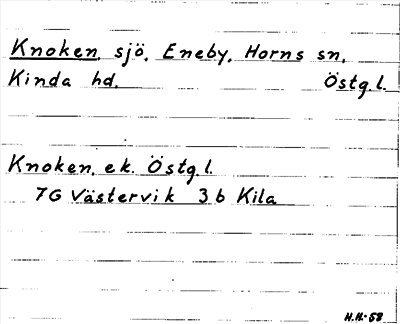 Knoken, sjö, Eneby, Horns sn,
Kinda hd. Östg.l.
Knoken, ek. Östg.l.
7G Västervik 3b Kila
H.H.-58